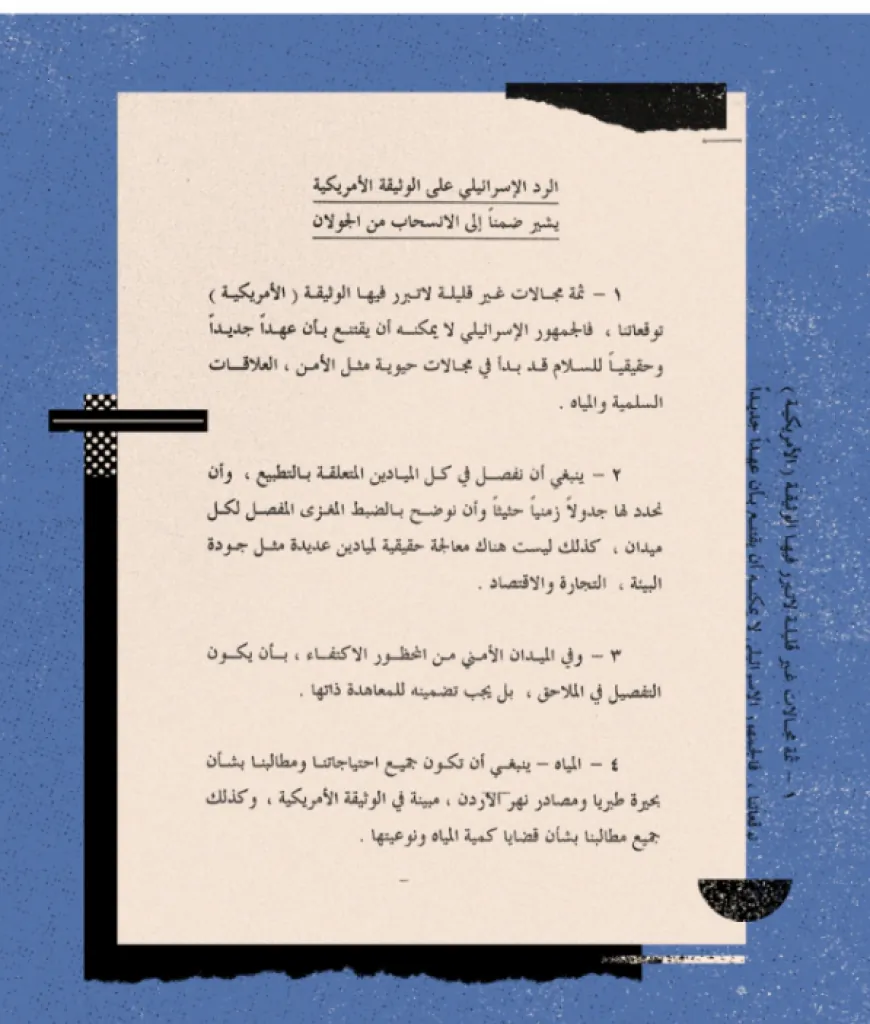 الرد الإسرائيلي على الوثيقة الأمريكية
يشير ضمناً إلى الانسحاب من الجولان
١ – ثمة مجالات غير قليلة لاتبرر فيها الوثيقة ( الأمريكية )
توقعاتنا ، فالجمهور الإسرائيلي لا يمكنه أن يقتنع بأن عهداً جديداً
وحقيقياً للسلام قد بدأ في مجالات حيوية مثل الأمن ، العلاقات
السلمية والمياه .
٢ – ينبغي أن نفصل في كل الميادين المتعلقة بالتطبيع ، وأن
نحدد لها جدولاً زمنياً حثيثاً وأن نوضح بالضبط المغزى المفصل لكل
ميدان ، كذلك ليست هناك معالجة حقيقية لميادين عديدة مثل جودة
البيئة ، التجارة والاقتصاد .
٣ – وفي الميدان الأمني من المحظور الاكتفاء ، بأن يكون
التفصيل في الملاحق ، بل يجب تضمينه للمعاهدة ذاتها .
٤ – المياه – ينبغي أن تكون جميع احتياجاتنا ومطالبنا بشأن
بحيرة طبريا ومصادر نهر الأردن ، مبينة في الوثيقة الأمريكية ، وكذلك
جميع مطالبنا بشأن قضايا كمية المياه ونوعيتها .
١ – ثمة مجالات غير قليلة لاتبرر فيها الوثيقة ( الأمريكية )
توقعاتنا ، فالجمهور الإسرائيلي لا يمكنه أن يقتنع بأن عهداً جديداً